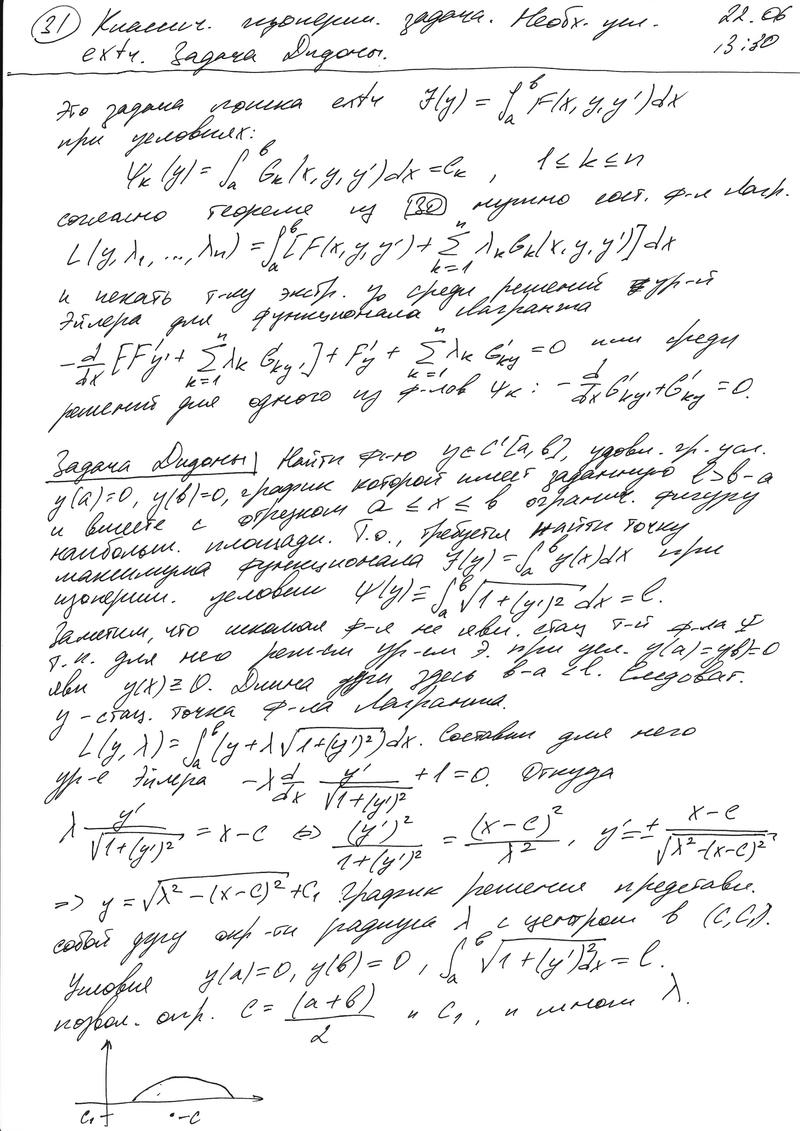 (31) Классич. изоперим. задача. Необх. усл. 22.06
extr. Задача Дидоны. 13:30
Это задача поиска extr J(y) = ∫_a^b F(x, y, y') dx
при условиях:
Ψ_k(y) = ∫_a^b G_k(x, y, y') dx = C_k, 1 ≤ k ≤ n
согласно теореме из [30] нужно сост. ф-л Лагр.
L(y, λ_1, ..., λ_n) = ∫_a^b [F(x, y, y') + Σ_{k=1}^n λ_k G_k(x, y, y')] dx
и искать т-ку экстр. y_0 среди решений ур-й
Эйлера для функционала Лагранжа
-d/dx [F'_{y'} + Σ_{k=1}^n λ_k G'_{ky'}] + F'_y + Σ_{k=1}^n λ_k G'_{ky} = 0 или среди
решений для одного из ф-лов Ψ_k: -d/dx G'_{ky'} + G'_{ky} = 0.
Задача Дидоны | Найти ф-ю y ∈ C'[a, b], удовл. гр. усл.
y(a)=0, y(b)=0, график которой имеет заданную l > b-a
и вместе с отрезком a ≤ x ≤ b огранич. фигуру
наибольш. площади. Т.о., требуется найти точку
максимума функционала J(y) = ∫_a^b y(x) dx при
изоперим. условии Ψ(y) ≡ ∫_a^b √(1+(y')²) dx = l.
Заметим, что искомая ф-я не явл. стац. т-й ф-ла Ψ
т.к. для него реш-ем ур-ем Э. при усл. y(a)=y(b)=0
явл y(x) ≡ 0. Длина дуги здесь b-a < l. Следоват.
y - стац. точка ф-ла Лагранжа.
L(y, λ) = ∫_a^b (y + λ√(1+(y')²)) dx. Составим для него
ур-е Эйлера -λ d/dx y'/√(1+(y')²) + 1 = 0. Откуда
λ y'/√(1+(y')²) = x-c ⇔ (y')²/(1+(y')²) = (x-c)²/λ², y' = ± (x-c)/√(λ²-(x-c)²)
=> y = √(λ²-(x-c)²) + C_1 График решения представл.
собой дугу окр-ти радиуса λ с центром в (C, C_1).
Условия y(a)=0, y(b)=0, ∫_a^b √(1+(y')²) dx = l.
позвол. опр. C = (a+b)/2 и C_1, и множ λ.
C_1 -c